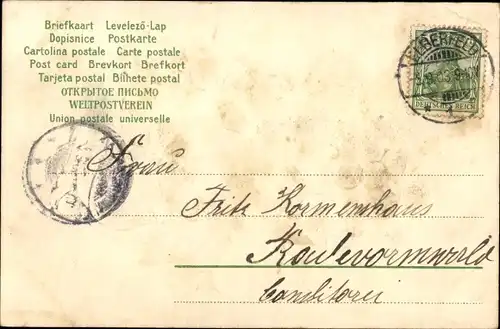 Briefkaart Levelező-Lap
Dopisnice Postkarte
Cartolina postale Carte postale
Post card Brevkort Brefkort
Tarjeta postal Bilhete postal
ОТКРЫТОЕ ПИСЬМО
WELTPOSTVEREIN
Union postale universelle
ELBERFELD
DEUTSCHES REICH
Frau
Fritz Kormenhaus
Radevormwald
Conditorei